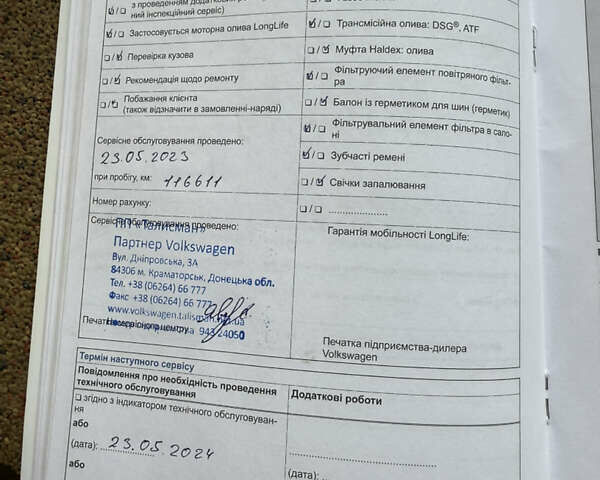 з проведенням додатков
ний інспекційний сервіс)
Застосовується моторна олива LongLife
Перевірка кузова
Рекомендація щодо ремонту
Побажання клієнта
(також відзначити в замовленні-наряді)
Сервісне обслуговування проведено:
23.05.2023
при пробігу, км: 116611
Номер рахунку:
Сервісне обслуговування проведено:
ПП «Талисман»
Партнер Volkswagen
Вул. Дніпровська, 3А
84306 м. Краматорськ, Донецька обл.
Тел. +38 (06264) 66 777
Факс +38 (06264) 66 777
www.volkswagen.talisman
943 24050
Печатка сервісного центру
Трансмісійна олива: DSG®, ATF
Муфта Haldex: олива
Фільтруючий елемент повітряного фільт-
ра
Балон із герметиком для шин (герметик)
Фільтрувальний елемент фільтра в сало-
ні
Зубчасті ремені
Свічки запалювання
....................
Гарантія мобільності LongLife:
Печатка підприємства-дилера
Volkswagen
Термін наступного сервісу
Повідомлення про необхідність проведення
технічного обслуговування
згідно з індикатором технічного обслуговуван-
ня
або
(дата): 23.05.2024
або
Додаткові роботи
(дата):